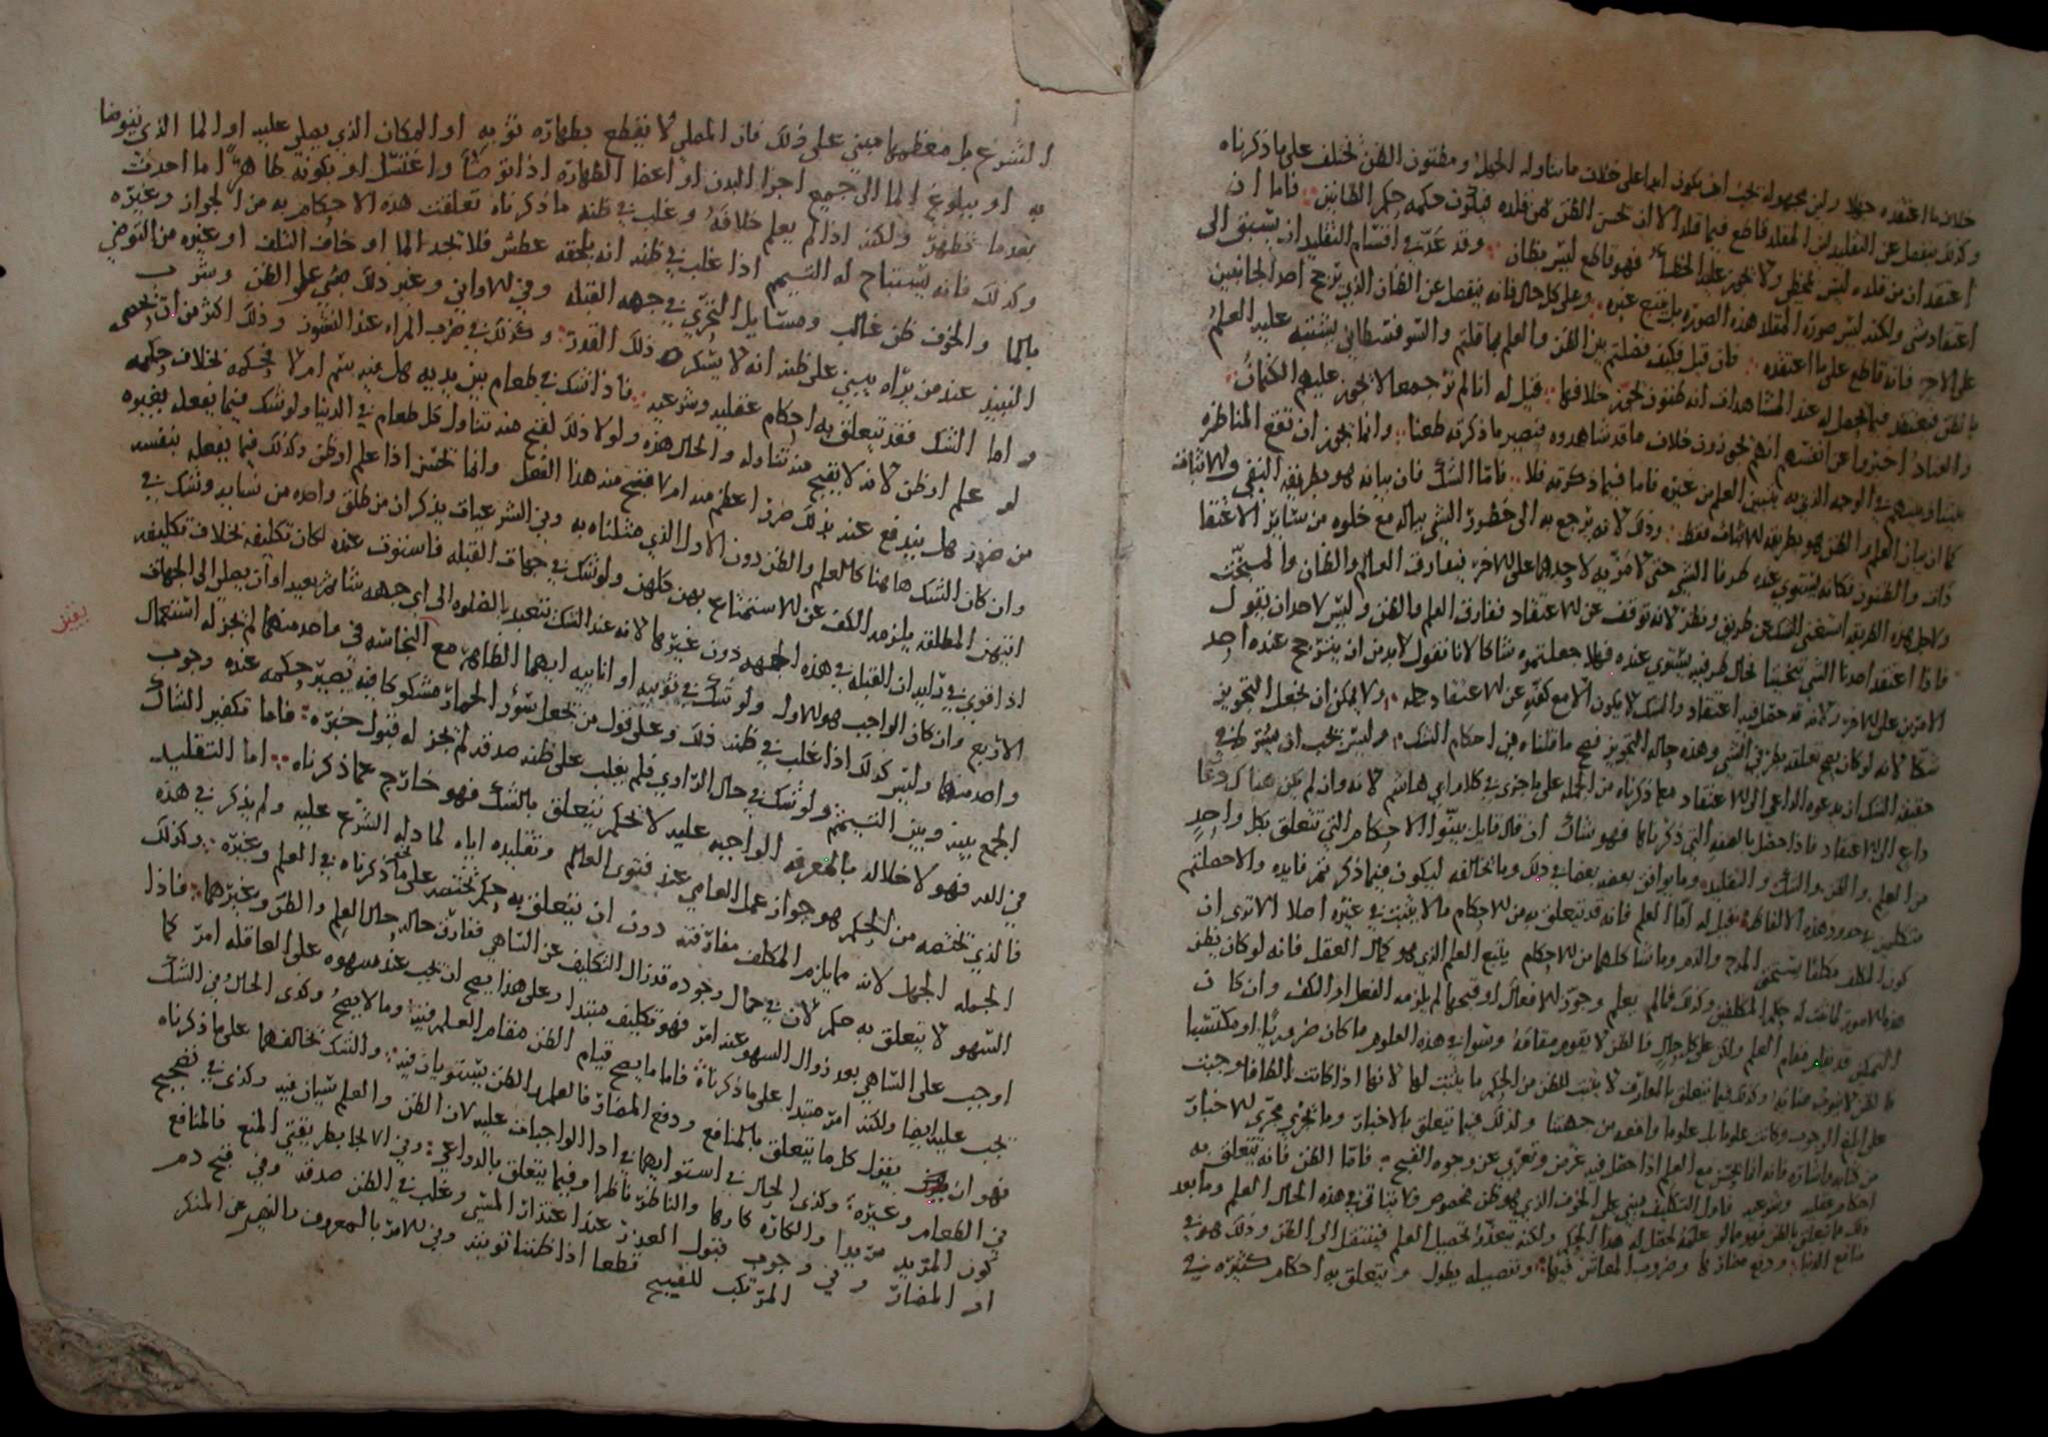 خلاف ما اعتقده جهلا ولن مجهوله يجب ان يكون ابدا على خلاف ما يتناوله الجهل ومظنون الظن يختلف على ما ذكرناه
وكذلك ينفصل عن التقليد لان المقلد قاطع فيما قلد الا ان يحسن الظن بمن قلده فيكون حكمه حكم الظانين فاما ان
اعتقد ان من قلده ليس يخطي ولا يجوز عليه الخطا فهو قاطع ليس بظان وقد عد في اقسام التقليد ان يسبق الى
اعتقاد شي ولكنه ليس صورة المقلد هذه الصورة بل يتبع غيره وعلى كل حال فانه ينفصل عن الظان الذي يرجح احد الجانبين
على الاخر فانه قاطع على ما اعتقده فان قيل فكيف فصلتم بين الظن والعلم بما قلتم والسوفسطائي يشتبه عليه العلم
بالظن فيعتقد فيما يحصل له عند المشاهدات انه ظنون يجوز خلافها قيل له انا لم نر جمعا لا يجوز عليهم الكتمان
والعناد اخبروا عن انفسهم انهم يجوزون خلاف ما قد شاهدوه فيصير ما ذكرته طعنا وانما يجوز ان تقع المناظره
بيننا وبينهم في الوجه الذي به يتبين العلم من غيره فاما فيما ذكرته فلا فاما الشك فان بيانه هو بطريقه النفي والاثبات
كما ان بيان العلم والظن هو بطريقه الاثبات فقط وذلك لانه يرجع به الى خطور الشي بباله مع خلوه من سائر الاعتقا
دات والظنون فكانه يستوي عنده طرفا الشي حتى لا مزيه لاحدهما على الاخر فيفارق العالم والظان والمبخت
ولاجل هذه الطريقه استغنى الشك عن طريق ونظر لانه توقف عن الاعتقاد ففارق العلم والظن وليس لاحد ان يقول
فاذا اعتقد احدنا الشي تبخيتا فحال طرفيه يستوي عنده فهلا جعلتموه شاكا لانا نقول لابد من ان يترجح عنده احد
الامرين على الاخر ولانه قد حصل فيه اعتقاد والشك لا يكون الا مع كفه عن الاعتقاد جمله ولا يمكن ان يجعل التجويز
شكا لانه لو كان يصح تعلقه بطرفي الشي وهذه حاله التجويز فصح ما قلناه في احكام الشك وليس يجب ان يشترط في
حقيقه الشك ان يدعوه الداعي الى الاعتقاد مع ما ذكرناه من الجمله على ما جرى في كلام ابي هاشم لانه وان لم يكن هناك دعا
داع الى الاعتقاد فاذا حصل بالصفه التي ذكرناها فهو شاك ان قال قايل بينوا الاحكام التي تتعلق بكل واحد
من العلم والظن والشك والتقليد وما يوافق بعضه بعضا في ذلك وما يخالفه ليكون فيما ذكرتم فايده والا حصلتم
متكلمين في حدود هذه الالفاظ قيل له اما العلم فانه قد يتعلق به من الاحكام ما لا يثبت في غيره اصلا الا ترى ان
كون المكلف مكلفا يستحق المدح والذم وما شاكلهما من الاحكام يتبع العلم الذي هو كمال العقل فانه لو كان يظن
هذه الامور لما ثبت له حكم المكلفين وكذلك فما لم يعلم وجوب الافعال او قبحها لم يلزمه الفعل او الكف وان كان
التمكين قد يقوم مقام العلم ولكن على كل حال فالظن لا يقوم مقامه وسوا في هذه العلوم ما كان ضروريا او مكتسبا
فالظن لا ينوب منابه وكذلك فيما يتعلق بالمعارف لا يثبت للظن من الحكم ما يثبت لها لانها اذا كانت الطافا وجبت
على ابلغ الوجوه وكانت علوما لا علوما واقعه من جهتنا وكذلك فيما يتعلق بالاخبار وما يجري مجرى الاخبار
من كتابه واشاره فانه انما يحسن مع العلم اذا حصل فيه غرض وتعرى عن وجوه القبح فاما الظن فانه تتعلق به
احكام عقليه وشرعيه فاول التكليف يبنى على الخوف الذي هو ظن مخصوص ولا يتاتى في هذه الحال العلم وما بعد
ذلك ما تعلق بالظن فهو مما لو علمه لحصل له هذا الحكم ولكنه يتعذر تحصيل العلم فينتقل الى الظن وذلك هو في
منافع الدنيا ودفع مضارها وضروب المعايش فيها وتفصيله يطول ويتعلق به احكام كثيره في
الشرع بل معظمها مبني على ذلك فان المصلي لا يقطع بطهاره ثوبه او المكان الذي يصلي عليه او الما الذي يتوضا
به او ببلوغ الما الى جميع اجزا البدن او اعضا الطهاره اذا توضا واغتسل او بكونه طاهرا ما احدث
بعدما تطهر ولكنه اذا لم يعلم خلافه وغلب في ظنه ما ذكرناه تعلقت هذه الاحكام به من الجواز وغيره
وكذلك فانه يستباح له التيمم اذا غلب في ظنه انه يلحقه عطش فلا تجد الما او خاف التلف او غيره من التوضي
بالما والخوف ظن غالب ومسايل التحري في جهه القبله وفي الاواني وغير ذلك مبني على الظن وشرب
النبيذ عند من يراه يبنى على ظنه انه لا يسكره ذلك القدر وكذلك في ضرب المراه عند النشوز وذلك اكثر من ان يحصى
واما الشك فقد تتعلق به احكام عقليه وشرعيه فاذا شك في طعام بين يديه هل فيه سم ام لا فحكمه بخلاف حكمه
لو علم او ظن لانه لا يقبح منه تناوله والحال هذه ولولا ذلك لقبح منه تناول كل طعام في الدنيا ولو شك فيما يفعله بغيره
من ضرر هل يندفع عنه بذلك ضرر اعظم منه ام لا فقبح منه هذا الفعل وانما يحسن اذا علم او ظن وكذلك فيما يفعله بنفسه
وان كان الشك هاهنا كالعلم والظن دون الاول الذي مثلناه به وفي الشرعيات يذكر ان من طلق واحده من نسايه وشك في
ايتهن المطلقه يلزمه الكف عن الاستمتاع بهن كلهن ولو شك في جهات القبله فاستوت عنده لكان تكليفه بخلاف تكليفه
اذا قوي في رايه ان القبله في هذه الجهه دون غيرها لانه عند الشك يتعبد بالصلوه الى اي جهه شا ثم يعيد او ان يصلي الى الجهات
الاربع وان كان الواجب هو الاول ولو شك في ثوبيه او انائيه ايهما الطاهر مع النجاسه في واحد منهما لم يجز له استعمال
واحد منهما وليس كذلك اذا غلب في ظنه ذلك وعلى قول من يجعل سؤر الحمار مشكوكا فيه يصير حكمه عنده وجوب
الجمع بينه وبين التيمم ولو شك في حال الراوي فلم يغلب على ظنه صدقه لم يجز له قبول خبره فاما تكفير الشاك
في الله فهو لاخلاله بالمعرفه الواجبه عليه لا لحكم يتعلق بالشك فهو خارج عما ذكرناه اما التقليد
فالذي تختصه من الحكم هو جواز عمل العامي عند فتوى العالم وتقليده اياه لما دل الشرع عليه ولم يذكر في هذه
الجمله الجهل لانه مما يلزم المكلف مفارقته دون ان يتعلق به حكم يختص على نحو ما ذكرناه في العلم وغيره وكذلك
السهو لا يتعلق به حكم لان في حال وجوده قد زال التكليف عن الساهي ففارق حاله حال العلم والظن وغيرهما فاذا
اوجب على الساهي بعد زوال السهو عنه امر فهو تكليف مبتدا وعلى هذا يصح ان يجب عند سهوه على العاقله امر كما
يجب عليه ايضا ولكنه امر مبتدا على ما ذكرناه فاما ما يصح قيام الظن مقام العلم فيه وما لا يصح وكذى الحال في الشك
فهو ان يقول كل ما يتعلق بالمنافع ودفع المضار فالعلم والظن يستويان فيه والشك يخالفهما على ما ذكرناه
في الطعام وغيره وكذى الحال في استوايهما في ادا الواجبات عليه لان الظن والعلم سيان فيه وكذى في تصحيح
كون المريد مريدا والكاره كارها والناظر ناظرا وفيما يتعلق بالدواعي وفي الالجا بطريقتي المنع فالمنافع
او المضار وفي وجوب قبول العذر عند اعتذار المسي وغلب في الظن صدقه وفي قبح ذم
المرتكب للقبيح قطعا اذا ظننا توبته وفي الامر بالمعروف والنهي عن المنكر